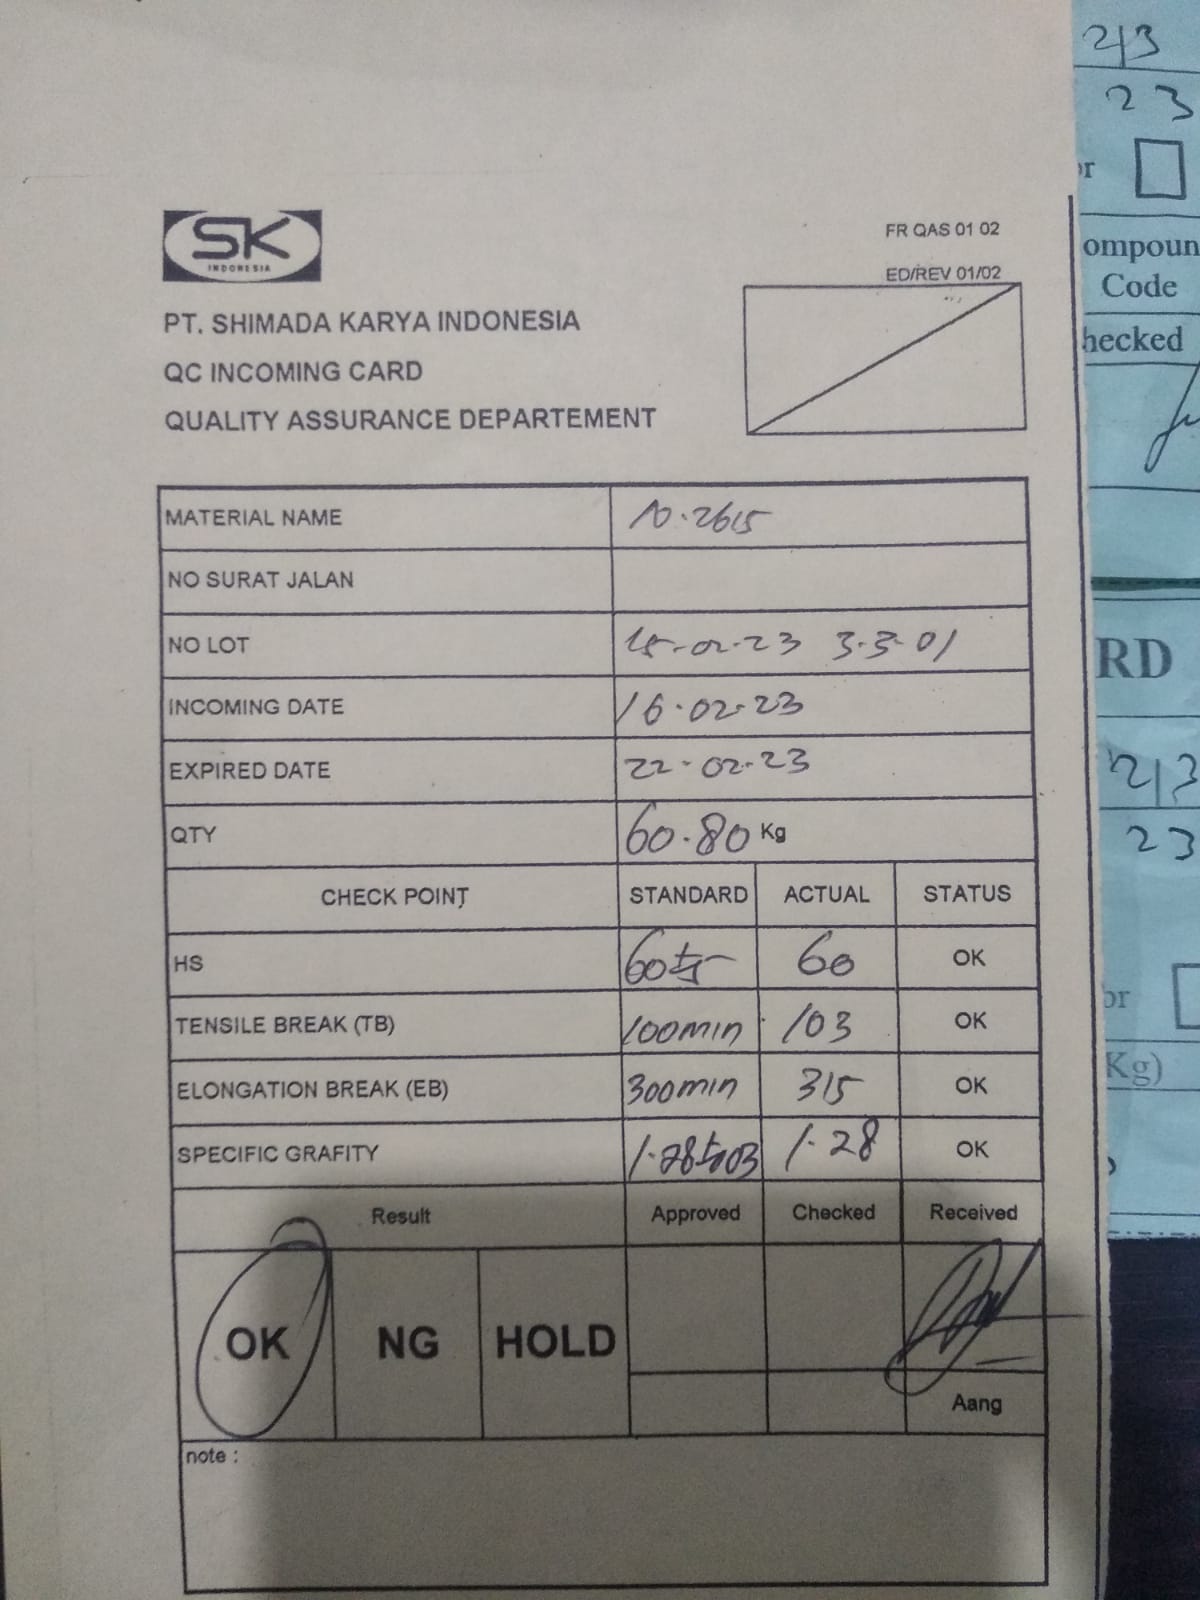 2/3
23
SK
INDONESIA
FR QAS 01 02
ED/REV 01/02
or
ompoun
Code
hecked
PT. SHIMADA KARYA INDONESIA
QC INCOMING CARD
QUALITY ASSURANCE DEPARTEMENT
MATERIAL NAME 10.2615
NO SURAT JALAN
NO LOT 15-02-23 3-3-01
INCOMING DATE 16.02.23
EXPIRED DATE 22-02-23
QTY 60.80 Kg
CHECK POINT STANDARD ACTUAL STATUS
HS 60±5 60 OK
TENSILE BREAK (TB) 100min 103 OK
ELONGATION BREAK (EB) 300min 315 OK
SPECIFIC GRAFITY 1.28±0.03 1.28 OK
Result Approved Checked Received
OK NG HOLD
Aang
note :
RD
2/3
23
or
Kg)